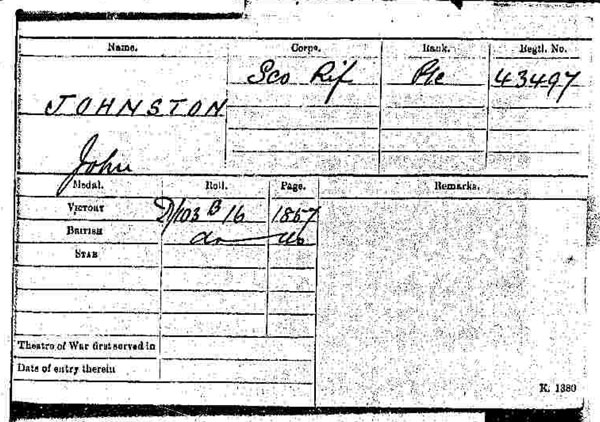 Name. Corps. Rank. Regtl. No.
JOHNSTON Sco Rif Pte 43497
John
Medal. Roll. Page. Remarks.
VICTORY D/103 B 16 1857
BRITISH do do
STAR
Theatre of War first served in
Date of entry therein
K. 1380